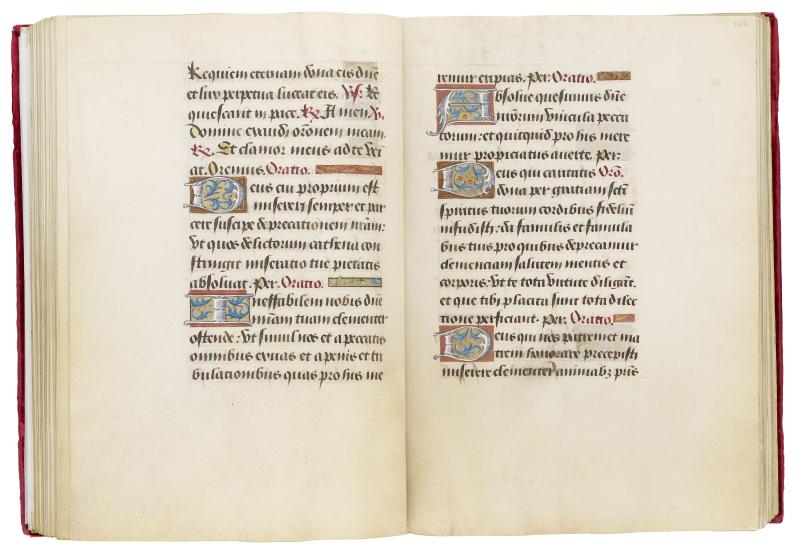 Requiem eternam dona eis dn̄e
et lux perpetua luceat eis. Vs: Re
quiescant in pace. R. Amen. Vs.
Domine exaudi orōnem meam.
R. Et clamor meus ad te vei
at. Oremus. Oratio.
Deus cui proprium est
misereri semper et par
cere suscipe deprecationem nr̄am:
vt quos delictorum cathena con
stringit miseratio tue pietatis
absoluat. Per. Oratio.
Ineffabilem nobis dn̄e
mīam tuam clementer
ostende: vt simul nos et a peccatis
omnibus exuas et a penis et tri
bulationibus quas pro his me
126
remur eripias. Per. Oratio.
Absolue quesumus dn̄e
nr̄orum vincula pecca
torum: et quitquid pro his mere
mur propiciatus auerte. Per:
Deus qui caritatis Orō.
dona per gratiam scti
spiritus tuorum cordibus fideliū
infudisti: da famulis et famula
bus tuis pro quibus deprecamur
clemenciam salutem mentis et
corporis: vt te tota virtute diligāt.
et que tibi placita sunt tota dilec
tione perficiant. Per: Oratio.
Deus qui nos patrem et ma
trem honorare precepisti
miserere clementer animabꝫ pr̄is